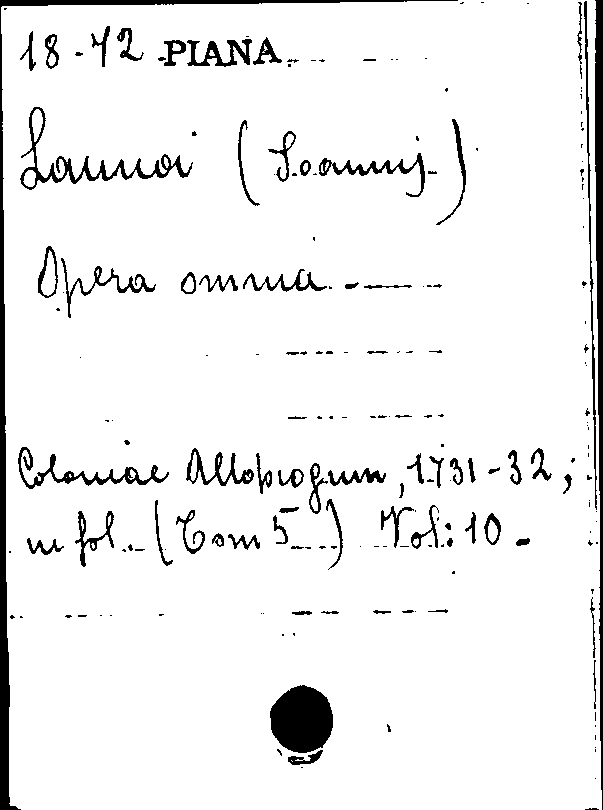 18-72 PIANA
Launoi (Joannis)
Opera omnia -
Coloniae Allobrogum, 1731-32;
in fol. (Tom 5) Vol: 10 -